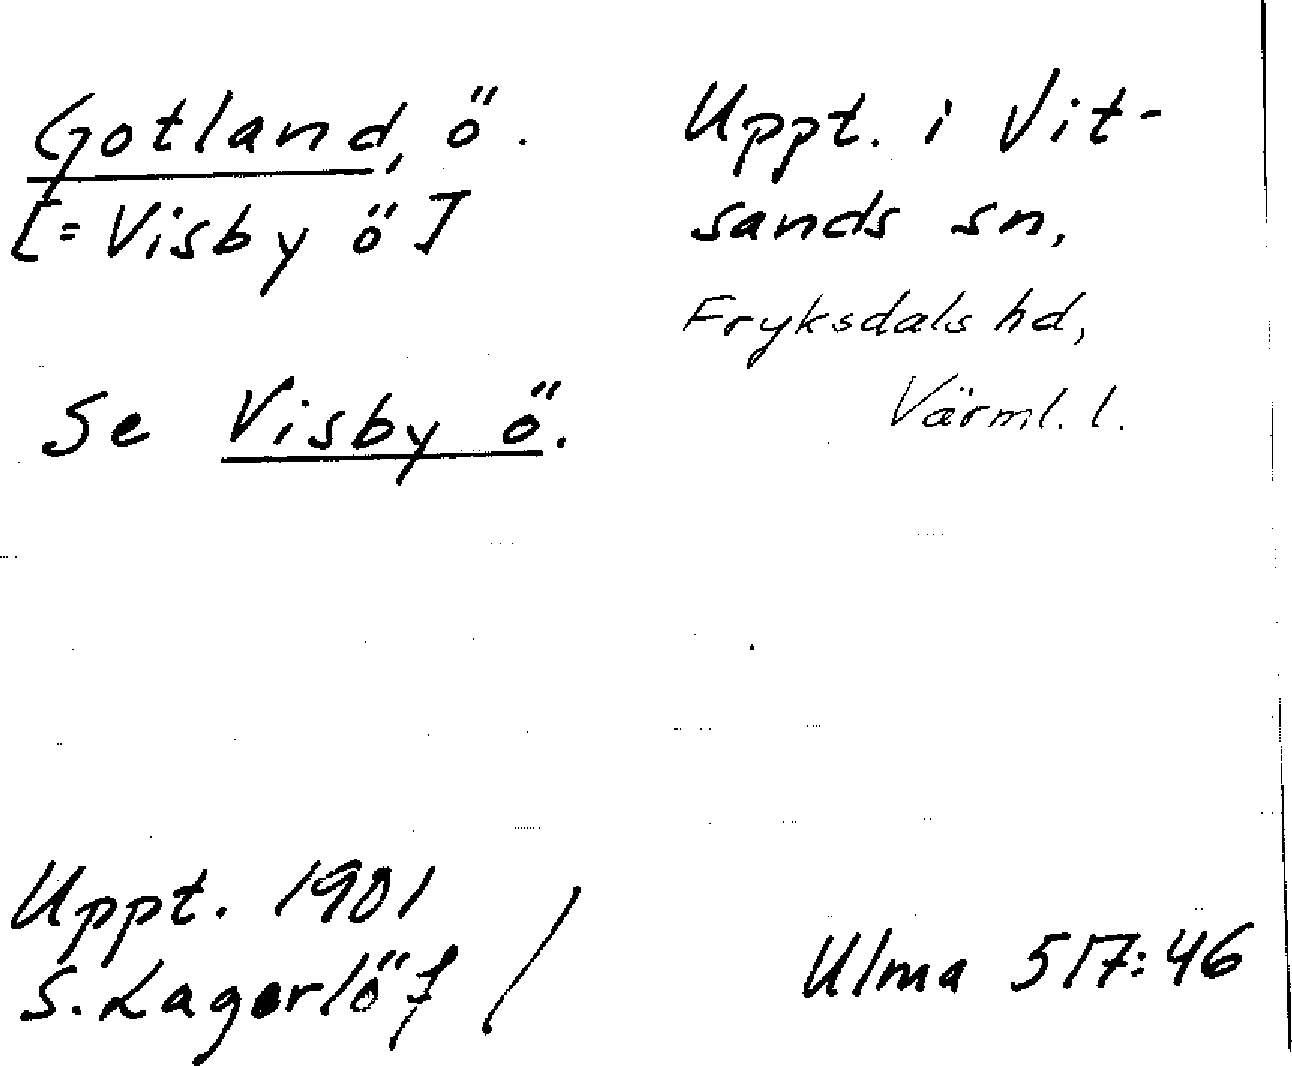 Gotland, ö.
[= Visby ö]
Se Visby ö.
Uppt. i Vit-
sands sn,
Fryksdals hd,
Värml. l.
Uppt. 1901
S. Lagerlöf /
Ulma 517:46